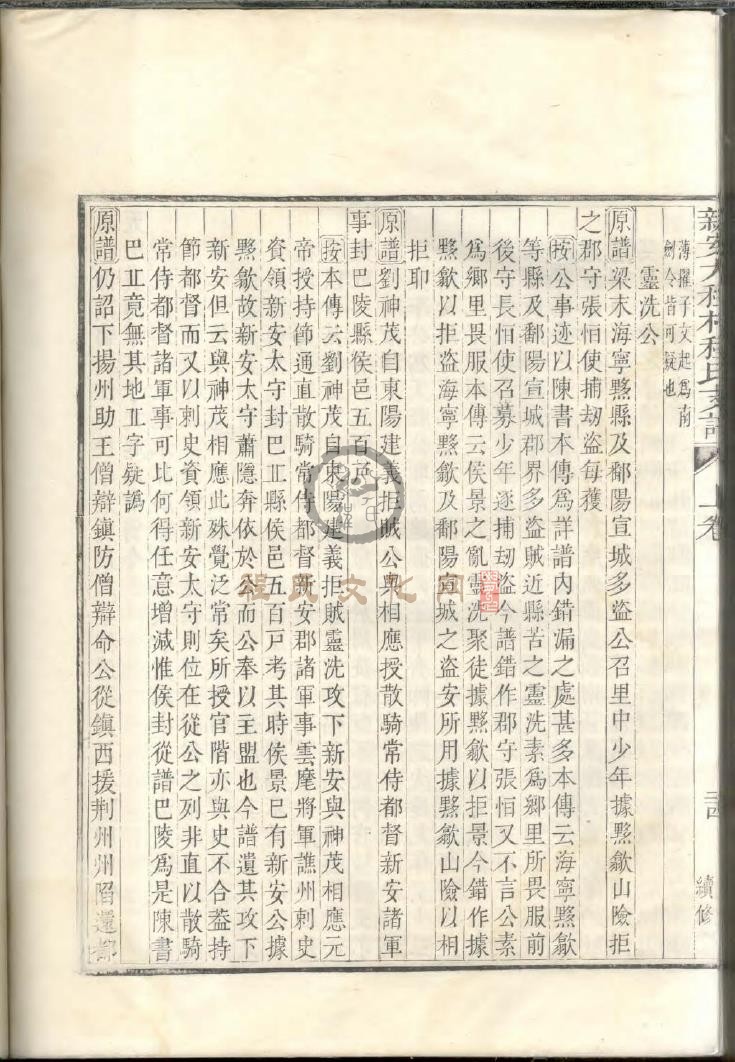 新安大程村程氏支譜 上卷 三四 續修
薄擢子文起爲南
劍令皆可疑也
靈洗公
原譜梁末海寧黟縣及鄱陽宣城多盜公召里中少年據黟歙山險拒
之郡守張怕使捕刼盜每獲
按公事迹以陳書本傳爲詳譜內錯漏之處甚多本傳云海寧黟歙
等縣及鄱陽宣城郡界多盜賊近縣苦之靈洗素爲鄉里所畏服前
後守長怕使召募少年逐捕刼盜今譜錯作郡守張怕又不言公素
爲鄉里畏服本傳云侯景之亂靈洗聚徒據黟歙以拒景今錯作據
黟歙以拒盜海寧黟歙及鄱陽宣城之盜安所用據黟歙山險以相
拒耶
原譜劉神茂自東陽建義拒賊公與相應授散騎常侍都督新安諸軍
事封巴陵縣侯邑五百户
按本傳云劉神茂自東陽建義拒賊靈洗攻下新安與神茂相應元
帝授持節通直散騎常侍都督新安郡諸軍事雲麾將軍譙州刺史
資領新安太守封巴丘縣侯邑五百戸考其時侯景巳有新安公據
黟歙故新安太守蕭隱奔依於公而公奉以主盟也今譜遺其攻下
新安但云與神茂相應此殊覺泛常矣所授官階亦與史不合葢持
節都督而又以刺史資領新安太守則位在從公之列非直以散騎
常侍都督諸軍事可比何得任意增減惟侯封從譜巴陵爲是陳書
巴丘竟無其地丘字疑譌
原譜仍詔下揚州助王僧辯鎮防僧辯命公從鎮西援荆州州陷還都
程氏文化网